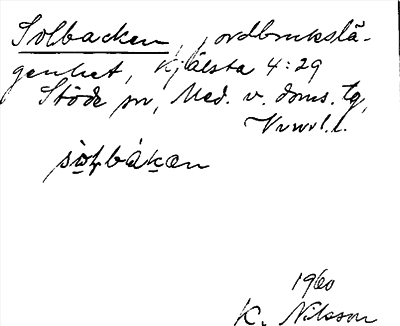 Solbacken, jordbrukslä-
genhet, Kjälsta 4:29
Stöde sn, Med. v. doms. tg,
Vnrl. l.
sòḷbákan
1960
K. Nilsson